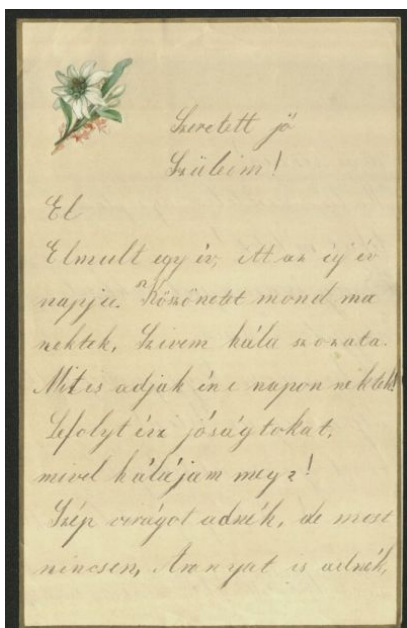 Szeretett jó
Szüleim!
El
Elmult egy év, itt az új év
napja. Köszönetet mond ma
nektek, Szivem hála szozata.
Mit is adjak én e napon nektek!
Lefolyt évi jóságtokat,
mivel hálájam meg?!
Szép virágot adnék, de most
nincsen, Aranyat is adnék,